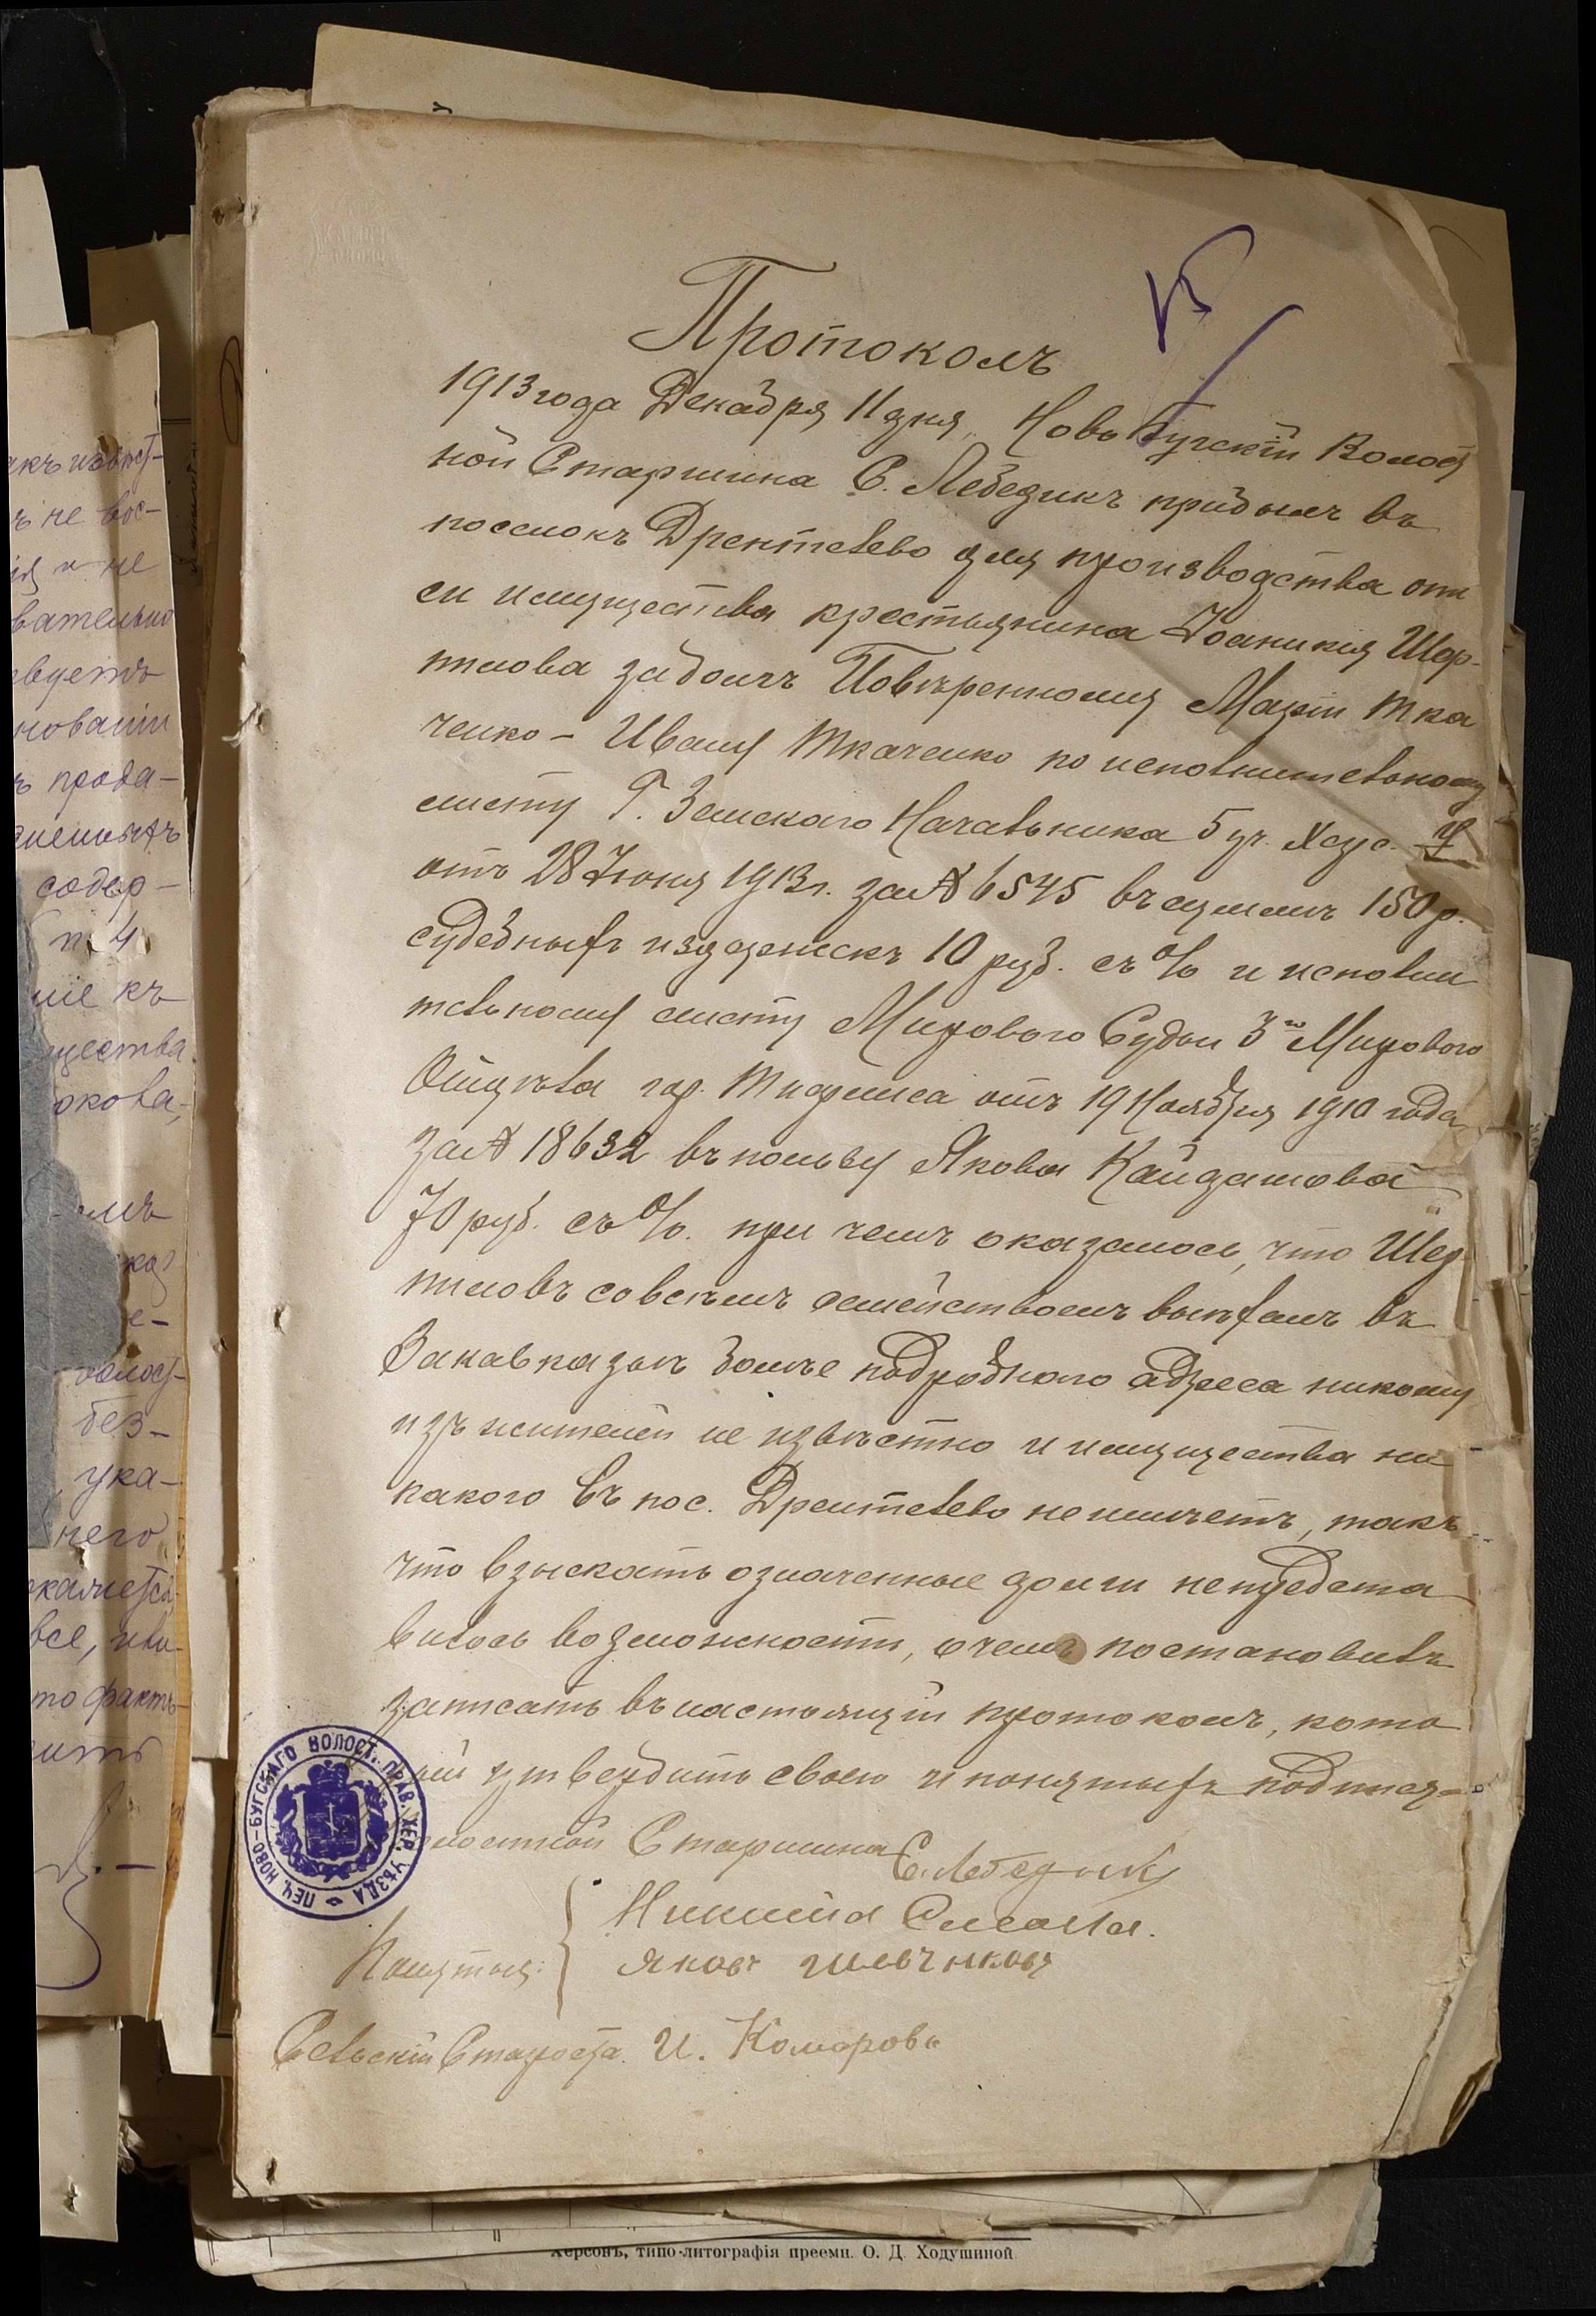 Протоколъ
1913 года Декабря 11 дня, Ново Бугскій Волост
ной Старшина С. Лебедикъ прибылъ въ
поселокъ Дрентелево для производства опи
си имущества крестьянина Іоаникія Шер-
тилова за долгъ Повѣренному Маріи Тка
ченко - Ивану Ткаченко по исполнительному
листу Г. Земскаго Начальника 5 уч. Херс. у
отъ 28 Іюня 1913 г. за № 6545 въ суммѣ 150 р.
судебныхъ издержекъ 10 руб. съ % и исполни
тельному листу Мирового Судьи 3го Мирового
Отдѣла гор. Тифлиса отъ 19 Ноября 1910 года
за № 18632 въ пользу Якова Кайдалова
70 руб. съ %. при чемъ оказалось, что Шер
тиловъ со всѣмъ семействомъ выѣхалъ въ
Закавказъ болѣе подробного адреса никому
изъ жителей не извѣстно и имущества ни
какого въ пос. Дрентелево не имѣетъ, такъ
что взыскать означенные долги не предста
вилось возможности, о чемъ постановилъ
записать въ настоящій протоколъ, кото
рый утвердить своею и понятыхъ подпися-
Волостной Старшина С. Лебедикъ
Понятые: Никита
Яковъ
Сельскій Староста И. Комаровъ
ПЕЧ. НОВО-БУГСКАГО ВОЛОСТ. ПРАВ. ХЕР. УѢЗДА
акъ извѣст-
ъ не вос-
ія и не
вательно
вуетъ
нованіи
ъ прода-
содер-
п. 4
ніе къ
щества
окова,
волост-
без-
ука-
чего
все, ибо
то фактъ-
Херсонъ, типо-литографія преемн. О. Д. Ходушиной